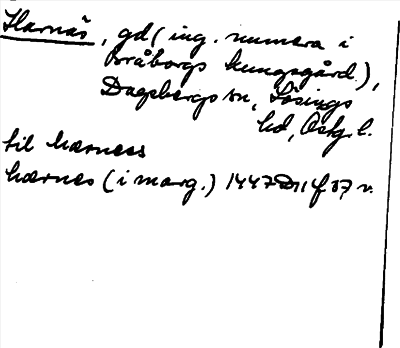 Harnäs, gd (ing. numera i
Bråborgs kungsgård.),
Dagsbergs sn, Lösings
hd, Östg. l.
til hærness
hærnes (i marg.) 1447 Dn 1 f 87 v.